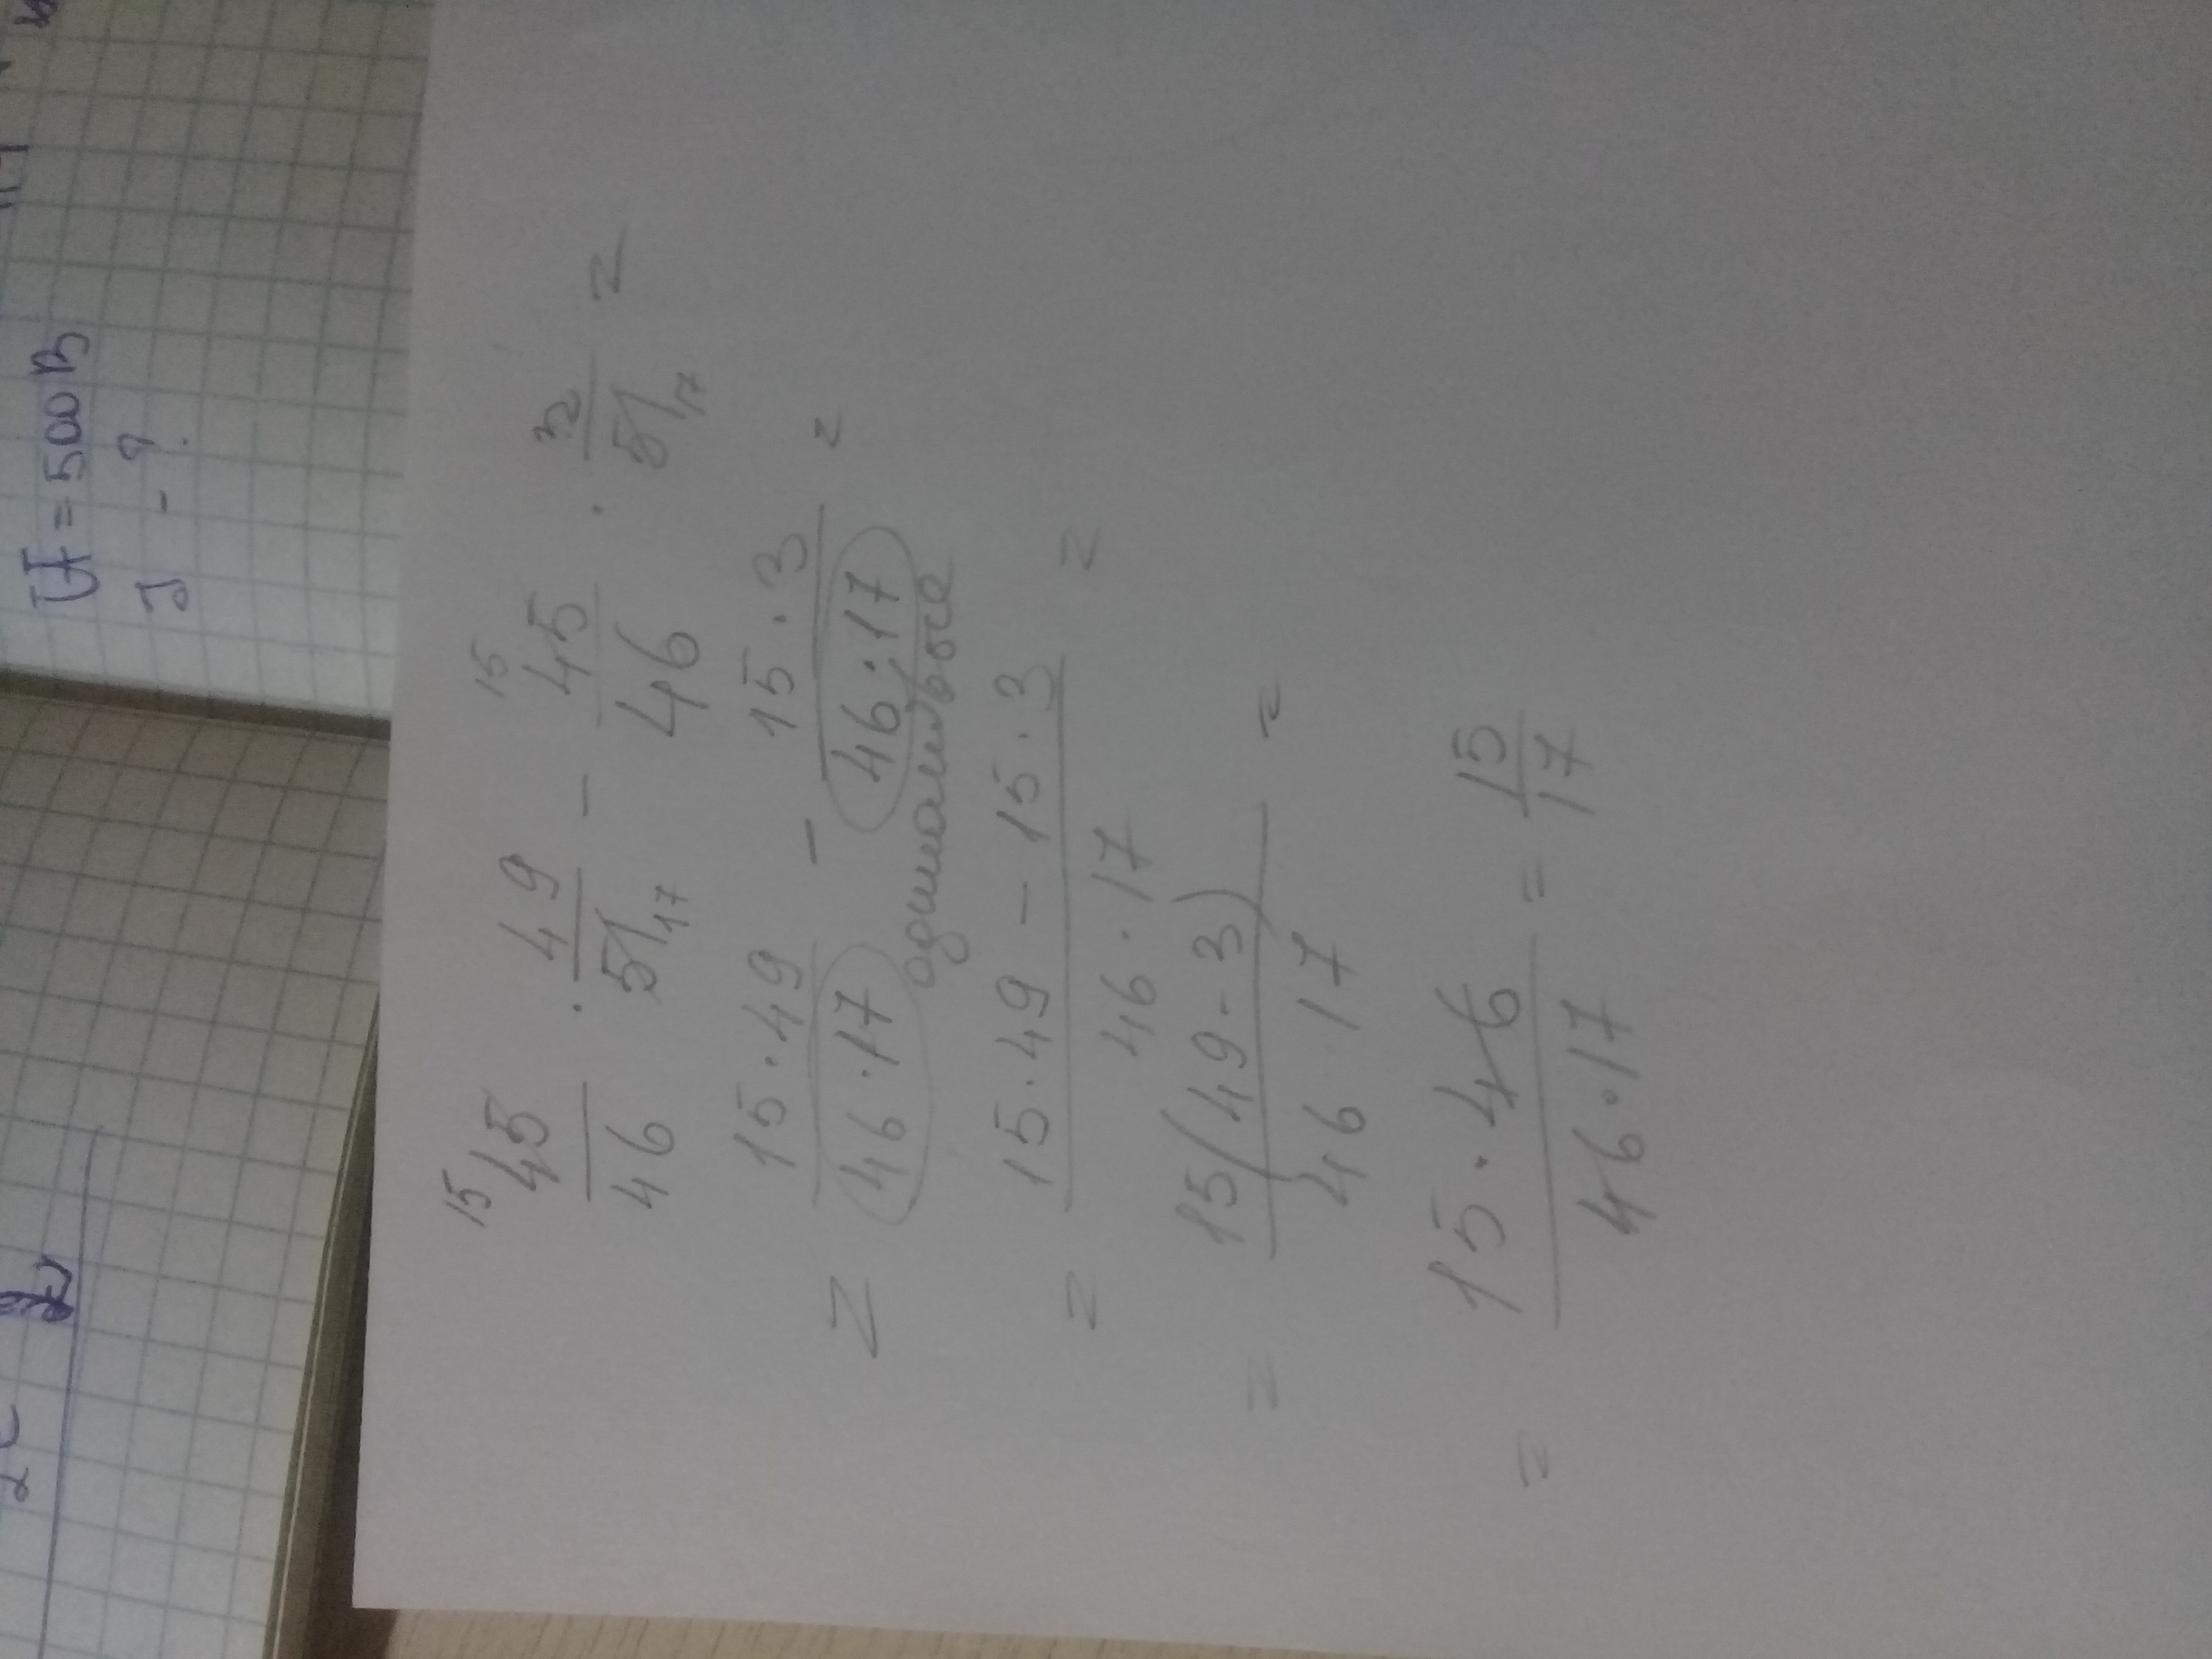 U = 500 В
J - ?
15 15
45/46 · 49/51 - 45/46 · 3/51 =
17 17
= 15·49/46·17 - 15·3/46·17 =
одинаковые
= 15·49 - 15·3/46·17 =
= 15(49-3)/46 17 =
= 15·46/46·17 = 15/17